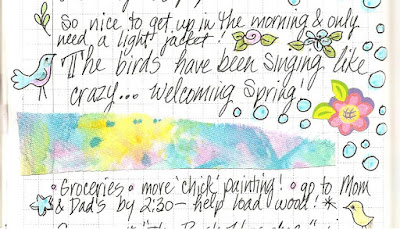 So nice to get up in the morning & only
need a light jacket!
The birds have been singing like
crazy... welcoming Spring!
• Groceries • more "chick" painting! • go to Mom
& Dad's by 2:30 - help load wood! *